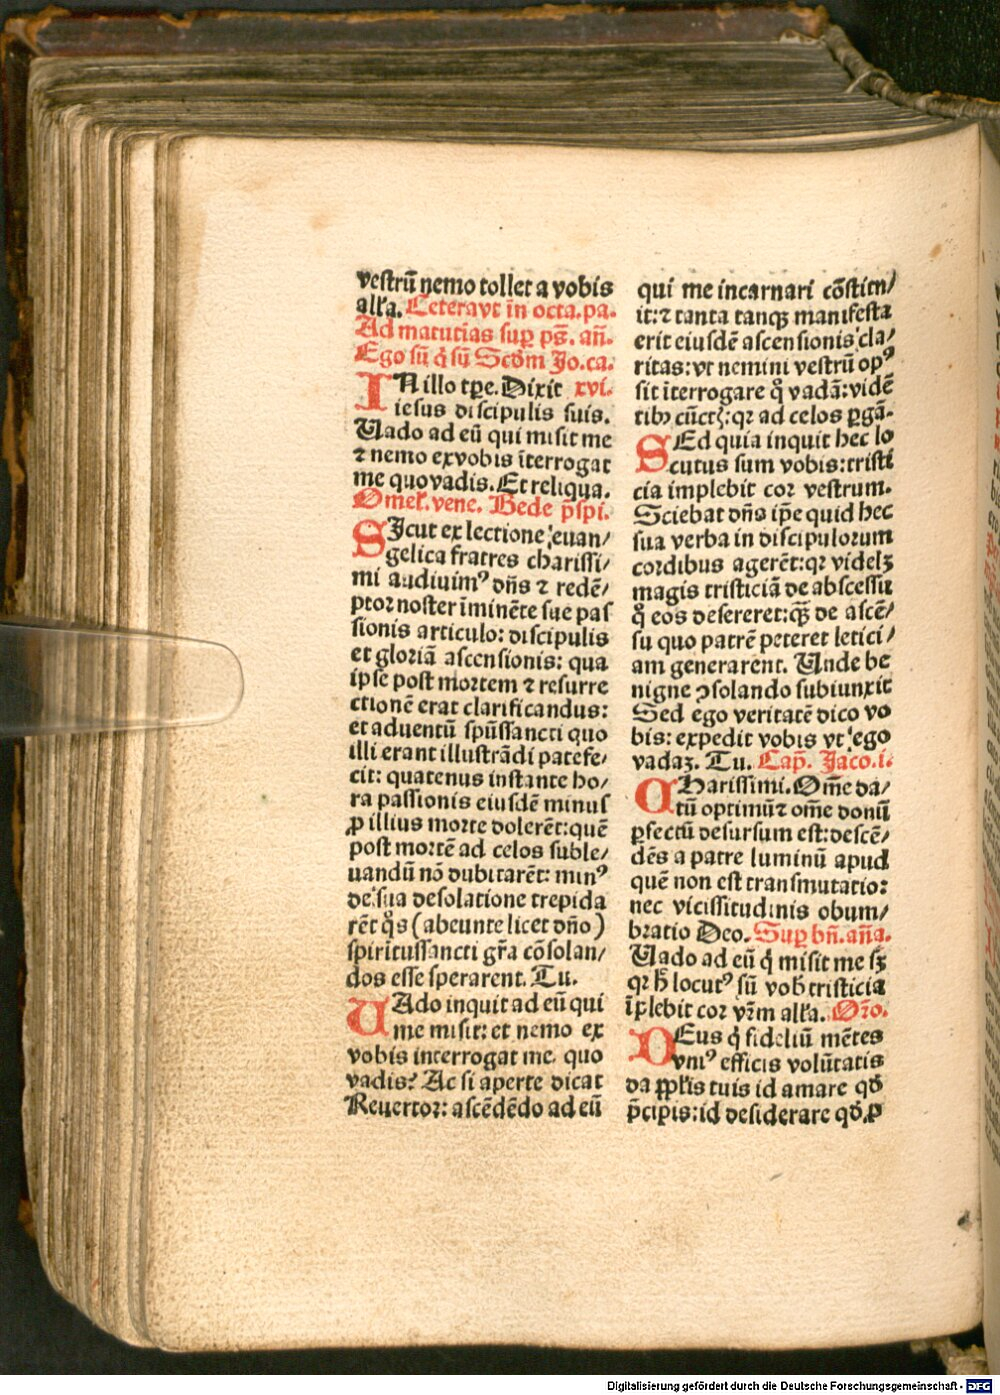 vestrū nemo tollet a vobis
all'a. Ceteravt īn octa.pa.
Ad matutīas sup ps̄. añ.
Ego sū q̇ sū Scd̄m Jo.ca.
IN illo tp̄e. Dixit xvi.
iesus discipulis suis.
Uado ad eū qui misit me
⁊ nemo exvobis īterrogat
me quo vadis. Et reliqua.
Omel'. vene. Bede p̄spi.
SIcut ex lectione euan/
gelica fratres charissi/
mi audiuimꝰ dn̄s ⁊ redē/
ptor noster īminēte sue pas
sionis articulo: discipulis
et gloriā ascensionis: qua
ipse post mortem ⁊ resurre
ctionē erat clarificandus:
et aduentū spūssancti quo
illi erant illustrādi patefe/
cit: quatenus instante ho/
ra passionis eiusdē minus
ꝓ illius morte dolerēt: quē
post mortē ad celos suble/
uandū nō dubitarēt: minꝰ
de sua desolatione trepida
rēt q̇s (abeunte licet dn̄o)
spiritussancti gr̄a cōsolan/
dos esse sperarent. Tu.
UAdo inquit ad eū qui
me misit: et nemo ex
vobis interrogat me. quo
vadis? Ac si aperte dicat
Reuertor: ascēdēdo ad eū
qui me incarnari cōstitu/
it: ⁊ tanta tanqꝫ manifesta
erit eiusdē ascensionis cla/
ritas: vt nemini vestrū opꝰ
sit īterrogare q̇ vadā: vidē
tibꝫ cūctꝭ: qꝛ ad celos ꝑgā.
SEd quia inquit hec lo
cutus sum vobis: tristi
cia implebit cor vestrum.
Sciebat dn̄s ip̄e quid hec
sua verba in discipulorum
cordibus agerēt: qꝛ videlꝫ
magis tristiciā de abscessu
q̇ eos desereret: qꝫ̄ de ascē/
su quo patrē peteret letici/
am generarent. Unde be
nigne ꝯsolando subiunxit
Sed ego veritatē dico vo
bis: expedit vobis vt ego
vadaꝫ. Tu. Cap̄. Jaco.i.
CHarissimi. Om̄e da/
tū optimū⁊ om̄e donū
ꝑfectū desursum est: descē/
dēs a patre luminū apud
quē non est transmutatio:
nec vicissitudinis obum/
bratio Deo. Suꝑ bn̄. añā.
Uado ad eū q̇ misit me sꝫ
qꝛ h̄ locutꝰ sū vob̄ tristicia
īplebit cor vr̄m all'a. Or̄o.
DEus q̇ fideliū mētes
vniꝰ efficis volūtatis
da ꝓpl'is tuis id amare qđ
p̄cipis: id desiderare qđ ꝓ
Digitalisierung gefördert durch die Deutsche Forschungsgemeinschaft - DFG